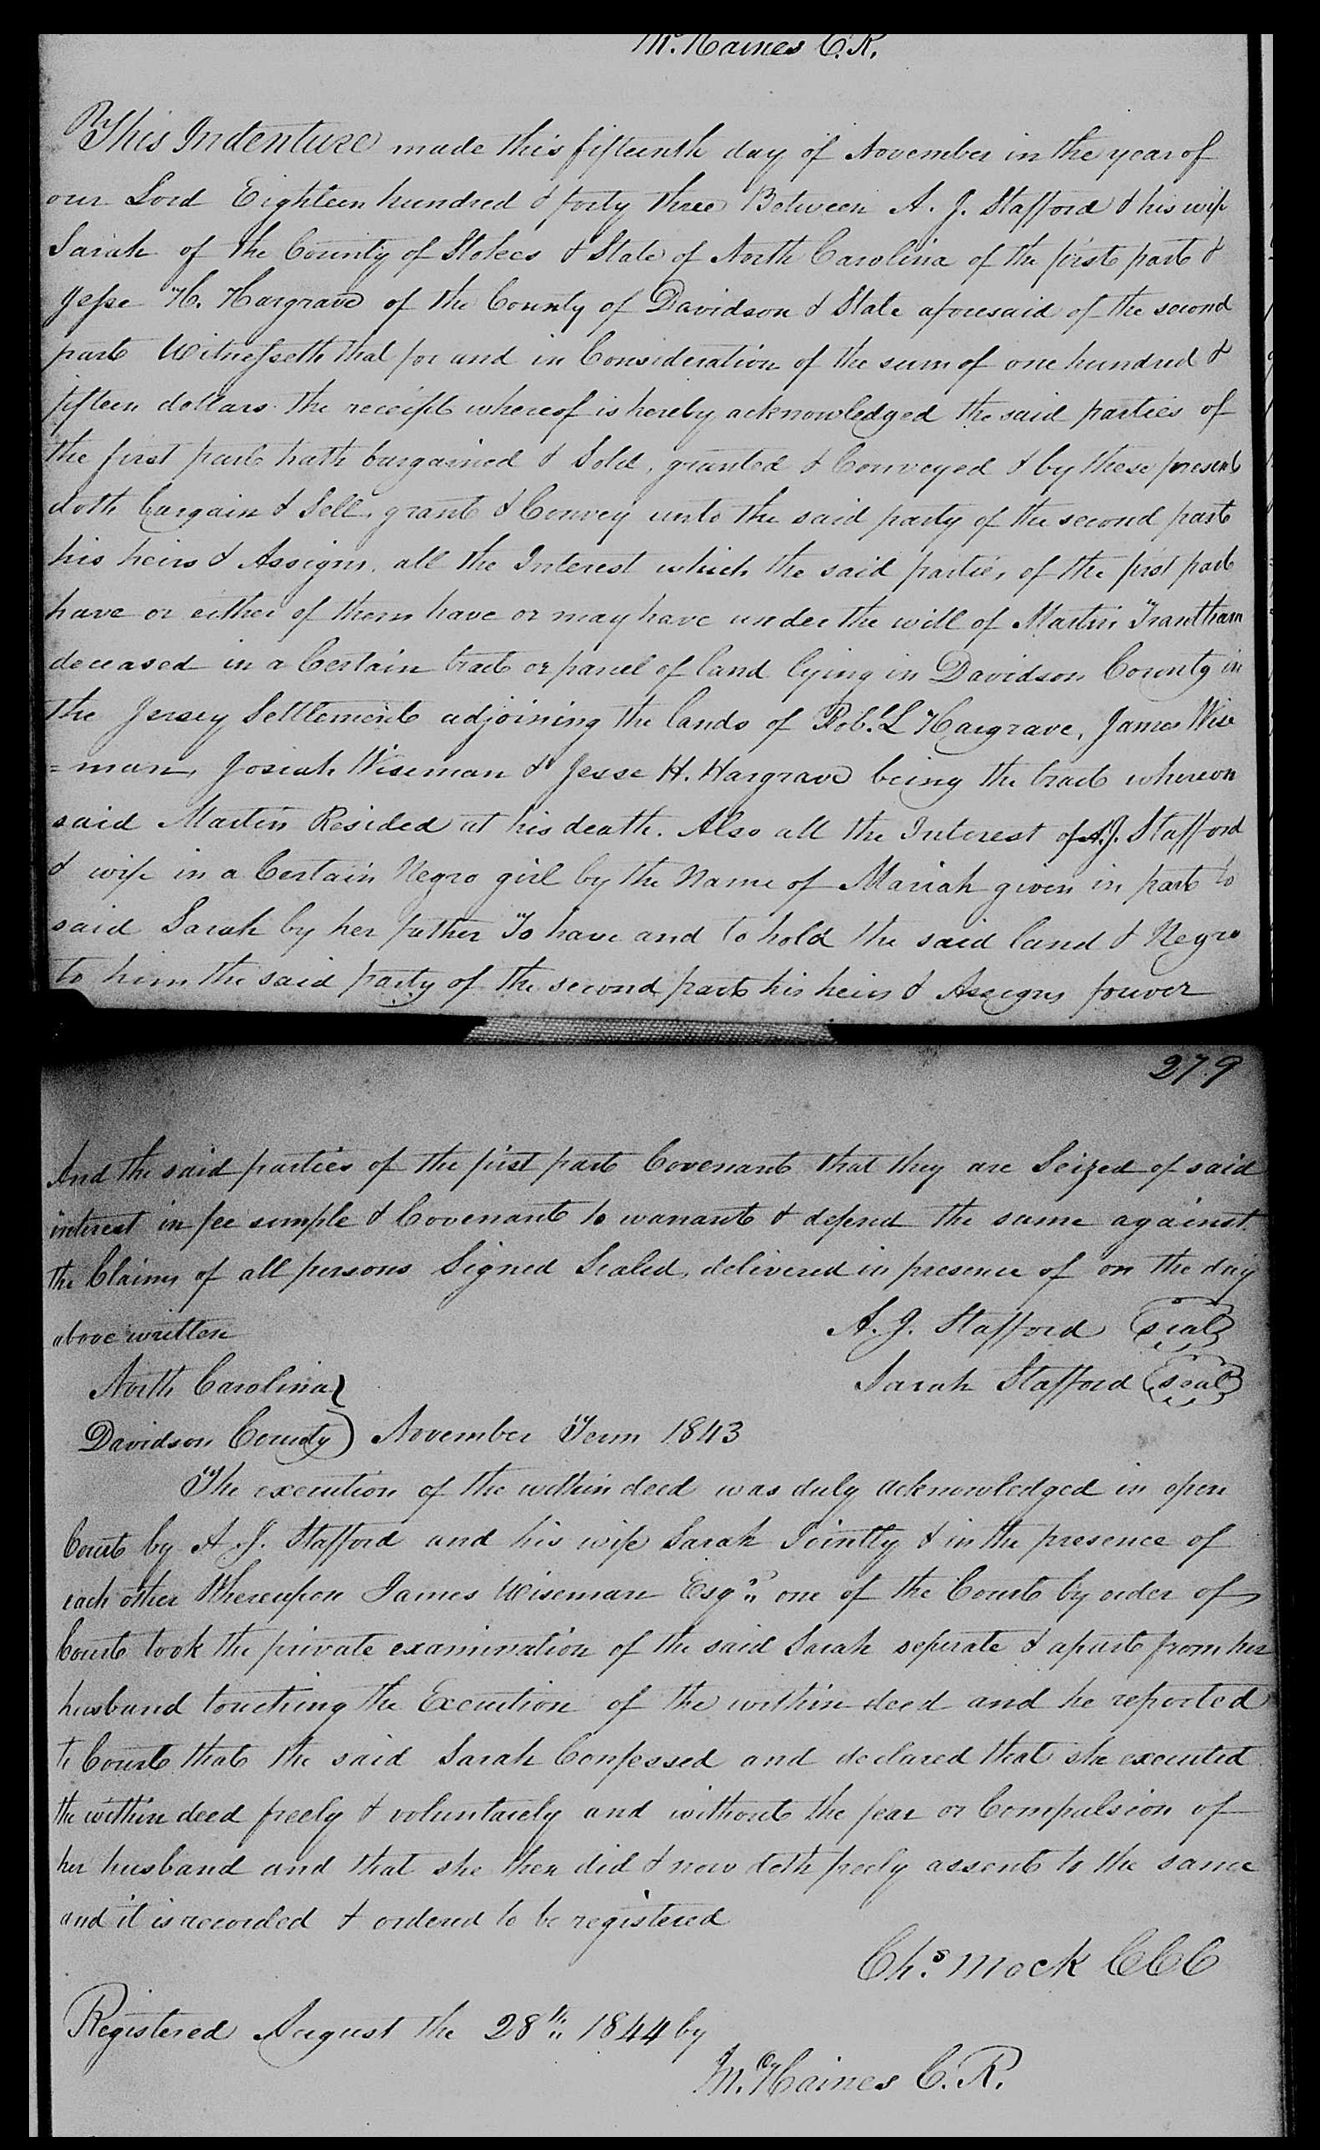 M. Haines C.R.
This Indenture made this fifteenth day of November in the year of
our Lord Eighteen hundred & forty three Between A. J. Stafford & his wife
Sarah of the County of Stokes & State of North Carolina of the first part &
Jesse H. Hargrave of the County of Davidson & State aforesaid of the second
part Witnesseth that for and in Consideration of the sum of one hundred &
fifteen dollars the receipt whereof is hereby acknowledged the said parties of
the first part hath bargained & Sold, granted & Conveyed & by these present
doth bargain & Sell, grant & Convey unto the said party of the second part
his heirs & Assigns, all the Interest which the said parties of the first part
have or either of them have or may have under the will of Martin Trantham
deceased in a Certain tract or parcel of land lying in Davidson County in
the Jersey Settlement adjoining the lands of Robt. L Hargrave, James Wise
=man, Josiah Wiseman & Jesse H. Hargrave being the tract whereon
said Martin Resided at his death. Also all the Interest of A.J. Stafford
& wife in a Certain Negro girl by the Name of Mariah given in part to
said Sarah by her father To have and to hold the said land & Negro
to him the said party of the second part his heirs & Assigns forever
279
And the said parties of the first part Covenant that they are Seized of said
interest in fee simple & Covenant to warrant & defend the same against
the Claims of all persons Signed Sealed, delivered in presence of on the day
above written A. J. Stafford (seal)
North Carolina } Sarah Stafford (seal)
Davidson County ) November Term 1843
The execution of the within deed was duly acknowledged in open
Court by A. J. Stafford and his wife Sarah Jointly & in the presence of
each other Whereupon James Wiseman Esqr. one of the Court by order of
Court took the private examination of the said Sarah seperate & apart from her
husband touching the Execution of the within deed and he reported
to Court that the said Sarah Confessed and declared that she executed
the within deed freely & voluntarely and without the fear or Compulsion of
her husband and that she then did & now doth freely assent to the same
and it is recorded & ordered to be registered
Chs. Mock CCC
Registered August the 28th 1844 by
M. Haines C.R.